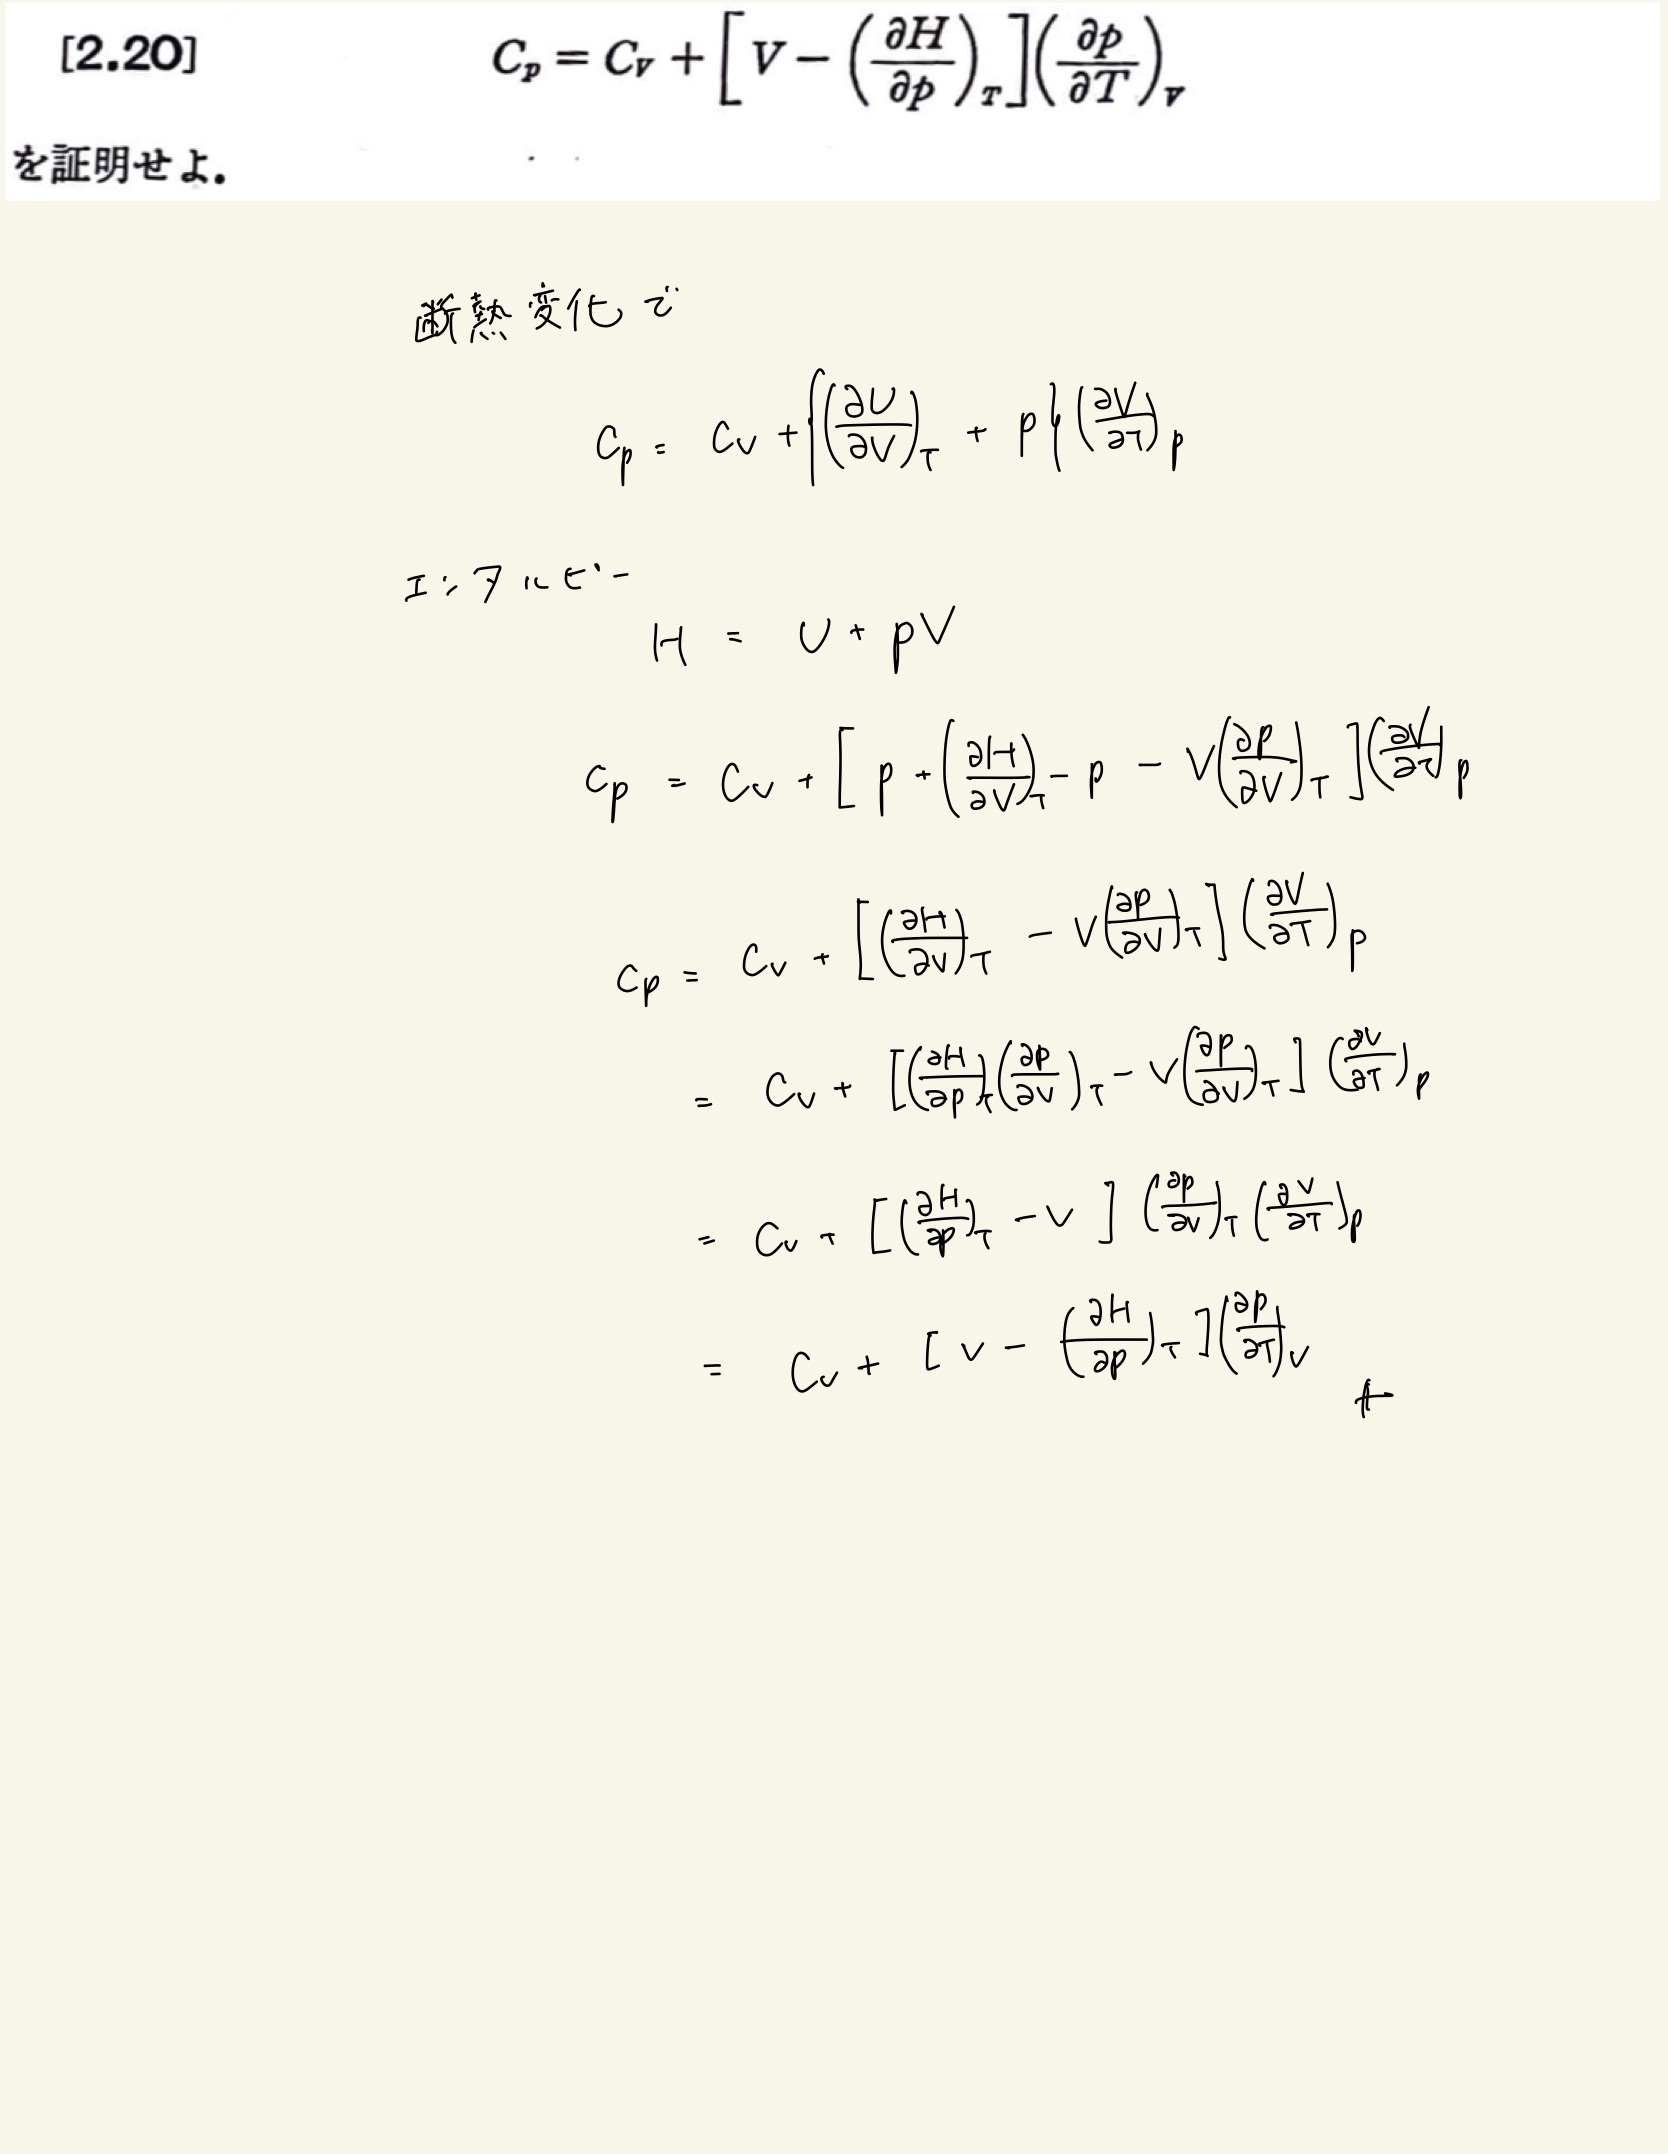 [2.20] C_p = C_V + [V − (∂H/∂p)_T](∂p/∂T)_V
を証明せよ.
断熱変化で
C_p = C_V + {(∂U/∂V)_T + p}(∂V/∂T)_p
エンタルピー
H = U + pV
C_p = C_V + [p + (∂H/∂V)_T − p − V(∂p/∂V)_T](∂V/∂T)_p
C_p = C_V + [(∂H/∂V)_T − V(∂p/∂V)_T](∂V/∂T)_p
= C_V + [(∂H/∂p)_T(∂p/∂V)_T − V(∂p/∂V)_T](∂V/∂T)_p
= C_V + [(∂H/∂p)_T − V](∂p/∂V)_T(∂V/∂T)_p
= C_V + [V − (∂H/∂p)_T](∂p/∂T)_V